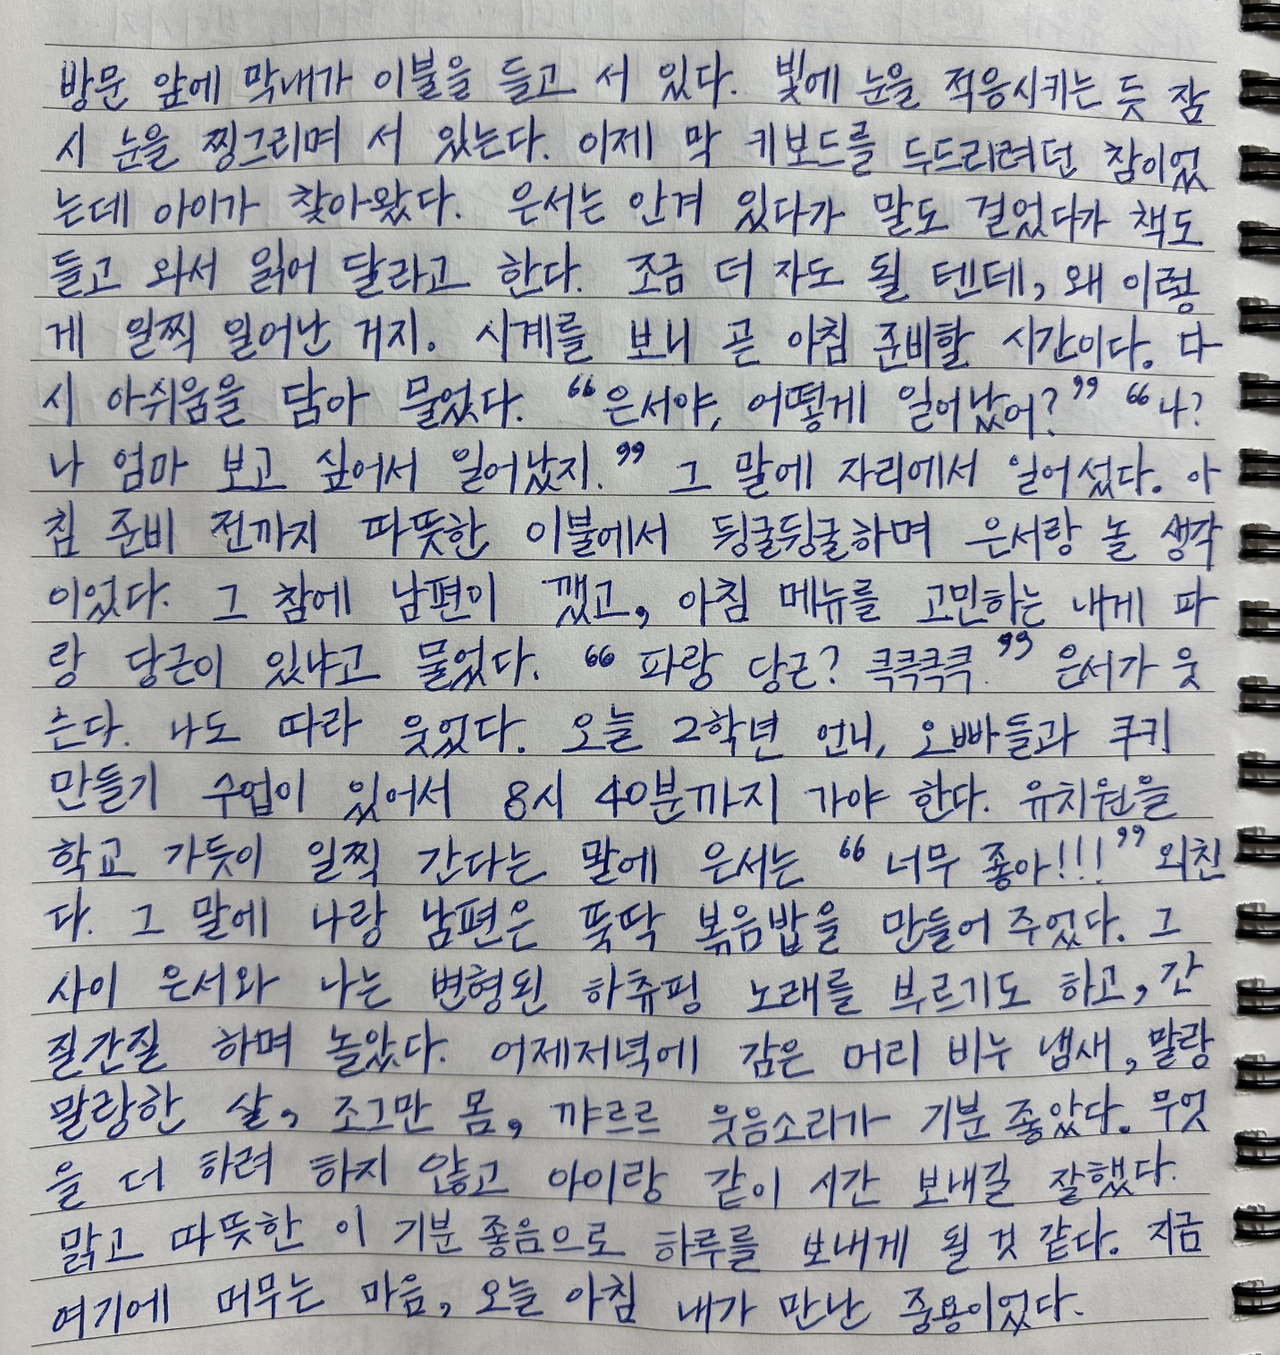 방문 앞에 막내가 이불을 들고 서 있다. 빛에 눈을 적응시키는 듯 잠
시 눈을 찡그리며 서 있는다. 이제 막 키보드를 두드리려던 참이었
는데 아이가 찾아왔다. 은서는 안겨 있다가 말도 걸었다가 책도
들고 와서 읽어 달라고 한다. 조금 더 자도 될 텐데, 왜 이렇
게 일찍 일어난 거지. 시계를 보니 곧 아침 준비할 시간이다. 다
시 아쉬움을 담아 물었다. “은서야, 어떻게 일어났어?” “나?
나 엄마 보고 싶어서 일어났지.” 그 말에 자리에서 일어섰다. 아
침 준비 전까지 따뜻한 이불에서 뒹굴뒹굴하며 은서랑 놀 생각
이었다. 그 참에 남편이 깼고, 아침 메뉴를 고민하는 내게 파
랑 당근이 있냐고 물었다. “파랑 당근? 큭큭큭큭.” 은서가 웃
는다. 나도 따라 웃었다. 오늘 2학년 언니, 오빠들과 쿠키
만들기 수업이 있어서 8시 40분까지 가야 한다. 유치원을
학교 가듯이 일찍 간다는 말에 은서는 “너무 좋아!!!” 외친
다. 그 말에 나랑 남편은 뚝딱 볶음밥을 만들어 주었다. 그
사이 은서와 나는 변형된 하츄핑 노래를 부르기도 하고, 간
질간질 하며 놀았다. 어제저녁에 감은 머리 비누 냄새, 말랑
말랑한 살, 조그만 몸, 꺄르르 웃음소리가 기분 좋았다. 무엇
을 더 하려 하지 않고 아이랑 같이 시간 보내길 잘했다.
맑고 따뜻한 이 기분 좋음으로 하루를 보내게 될 것 같다. 지금
여기에 머무는 마음, 오늘 아침 내가 만난 중용이었다.